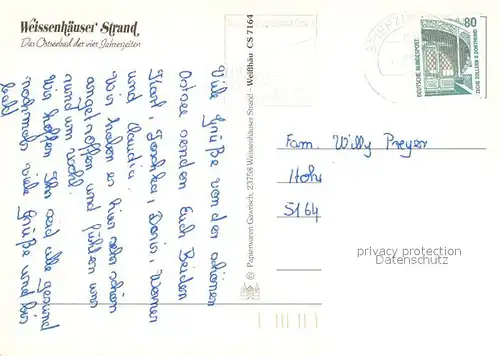 Weissenhäuser Strand,
Das Ostseebad der vier Jahreszeiten
Viele Grüße von der schönen
Ostsee senden Euch Beiden
Karl, Doris, Werner
und Claudia.
Wir haben es hier sehr schön
angetroffen und fühlen uns
rund um wohl.
Wir hoffen Ihr seid alle gesund
nochmals viele Grüße und bis
bald
© Papierwaren Gawrisch, 23758 Weissenhäuser Strand - Weißhäu CS 7164
80
DEUTSCHE BUNDESPOST
ZECHE ZOLLERN II DORTMUND
Fam. Willy Preyer
5164
privacy protection
Datenschutz